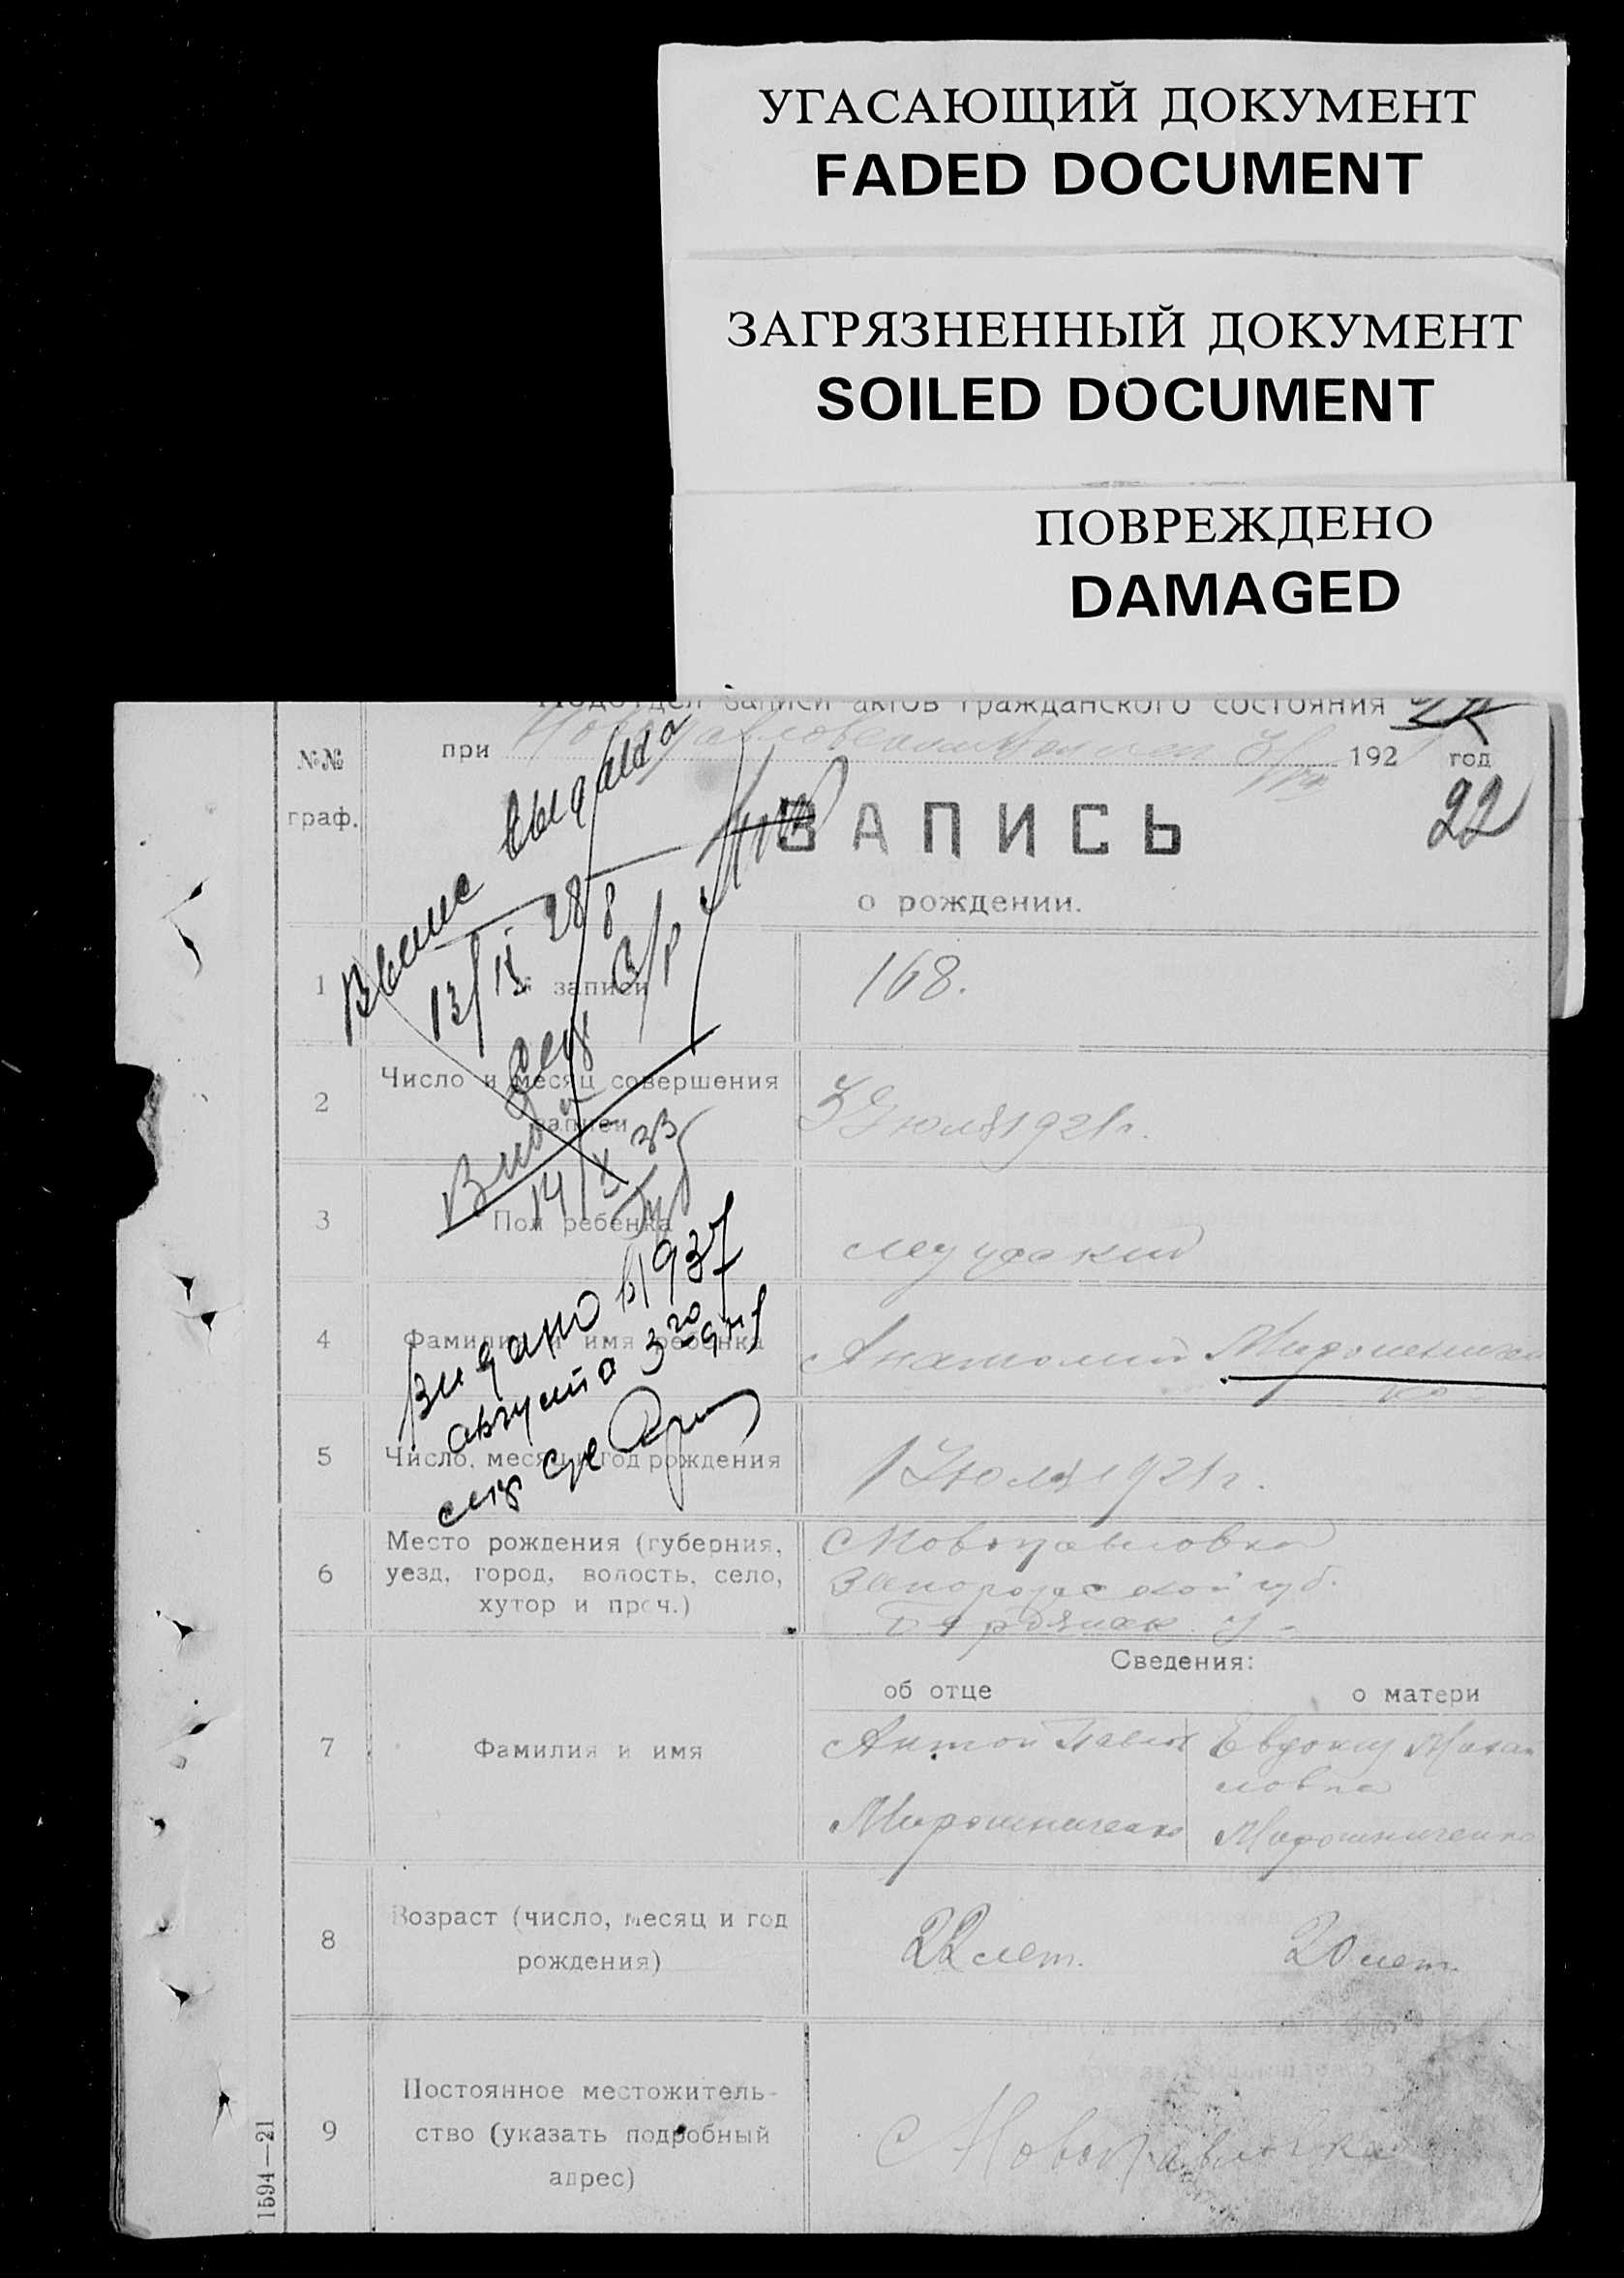 УГАСАЮЩИЙ ДОКУМЕНТ
FADED DOCUMENT
ЗАГРЯЗНЕННЫЙ ДОКУМЕНТ
SOILED DOCUMENT
ПОВРЕЖДЕНО
DAMAGED
Подотдел записи актов гражданского состояния
№№ граф.
при 192 год
22
ЗАПИСЬ
о рождении.
1 № записи 168.
2 Число и месяц совершения записи 3 Июля 1921 г.
3 Пол ребенка мужский
4 Фамилия и имя ребенка Анатолий Мирошниченко
5 Число, месяц и год рождения 1 Июля 1921 г.
6 Место рождения (губерния, уезд, город, волость, село, хутор и проч.)
с Новопавловка
Запорожской губ.
Бердянск. у.
Сведения:
об отце о матери
7 Фамилия и имя
Антон Мирошниченко
Мирошниченко
8 Возраст (число, месяц и год рождения) 22 лет. 20 лет.
9 Постоянное местожительство (указать подробный адрес)
с Новопавловка
1594—21
Выпись выдана
Видано в 1937
августа 3го дня